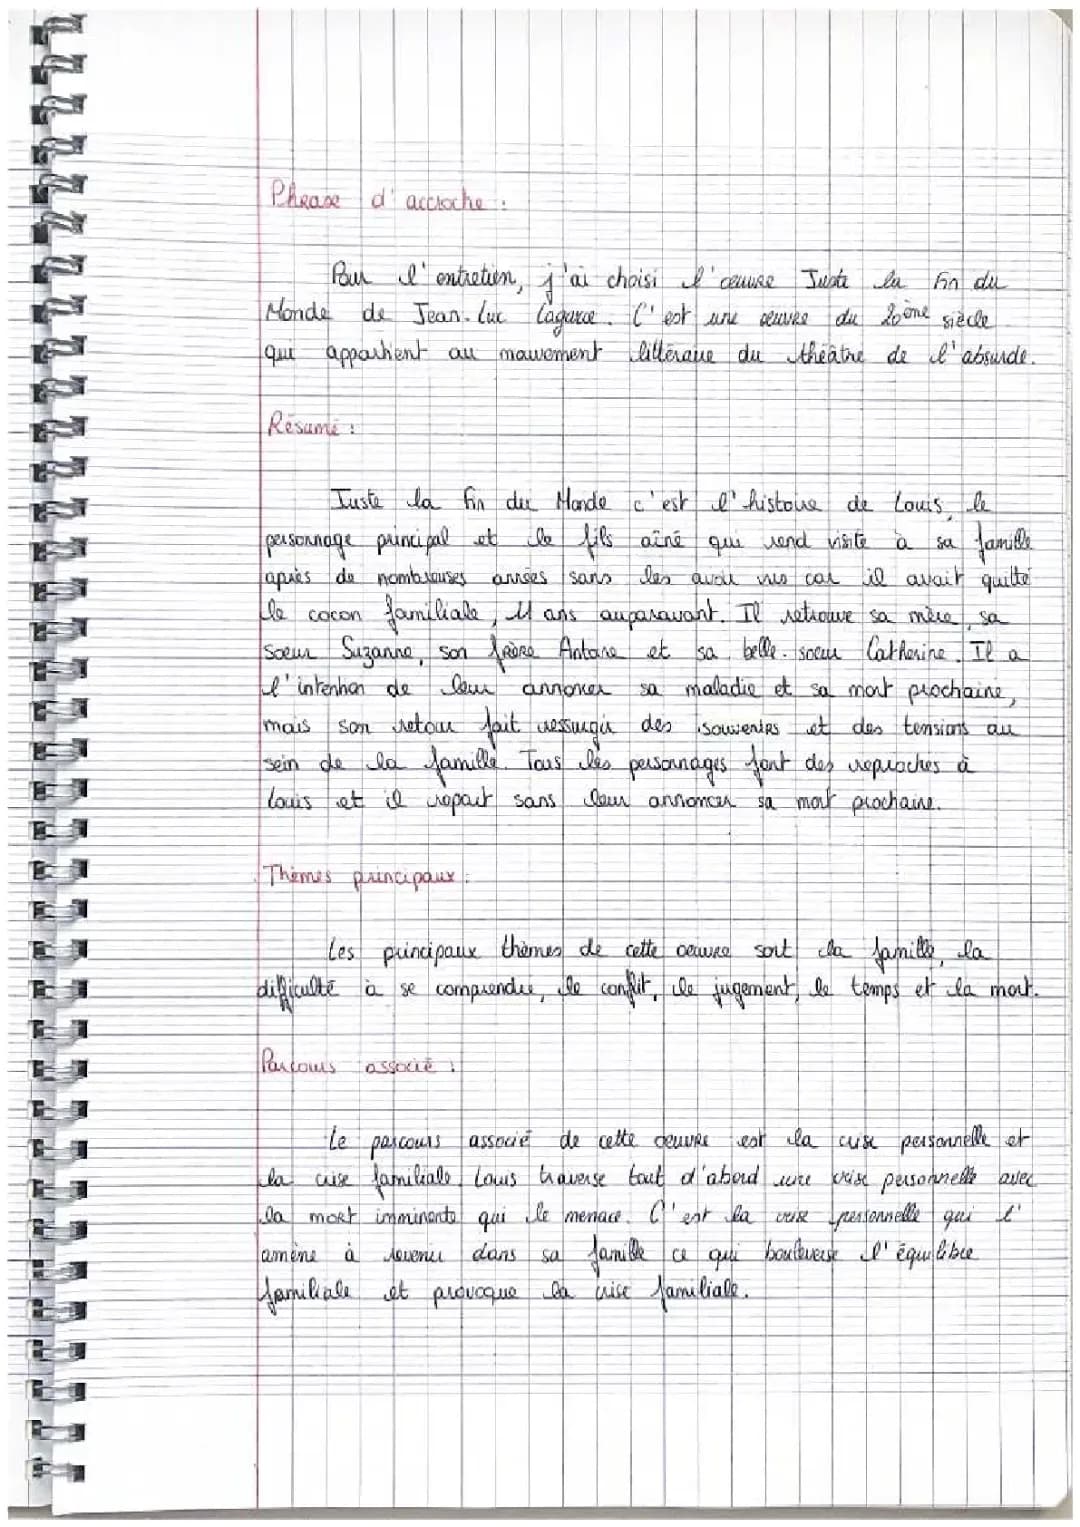 Phrase d'accroche :
Pour l'entretien, j'ai choisi l'œuvre Juste la Fin du
Monde de Jean-Luc Lagarce. C'est une œuvre du 20ème siècle
qui appartient au mouvement littéraire du théâtre de l'absurde.
Résumé :
Juste la Fin du Monde c'est l'histoire de Louis, le
personnage principal et le fils aîné qui rend visite à sa famille
après de nombreuses années sans les avoir vus car il avait quitté
le cocon familiale, ans auparavant. Il retrouve sa mère, sa
soeur Suzanne, son frère Antoine et sa belle-soeur Catherine. Il a
l'intention de leur annoncer sa maladie et sa mort prochaine,
mais son retour fait ressurgir des souvenirs et des tensions au
sein de la famille. Tous les personnages font des reproches à
Louis et il repart sans leur annoncer sa mort prochaine.
Thèmes principaux :
Les principaux thèmes de cette oeuvre sont la famille, la
difficulté à se comprendre, le conflit, le jugement, le temps et la mort.
Parcours associé :
Le parcours associé de cette oeuvre est la crise personnelle et
la crise familiale. Louis traverse tout d'abord une crise personnelle avec
la mort imminente qui le menace. C'est la crise personnelle qui l'
amène à revenir dans sa famille ce qui bouleverse l'équilibre
familiale et provoque la crise familiale.